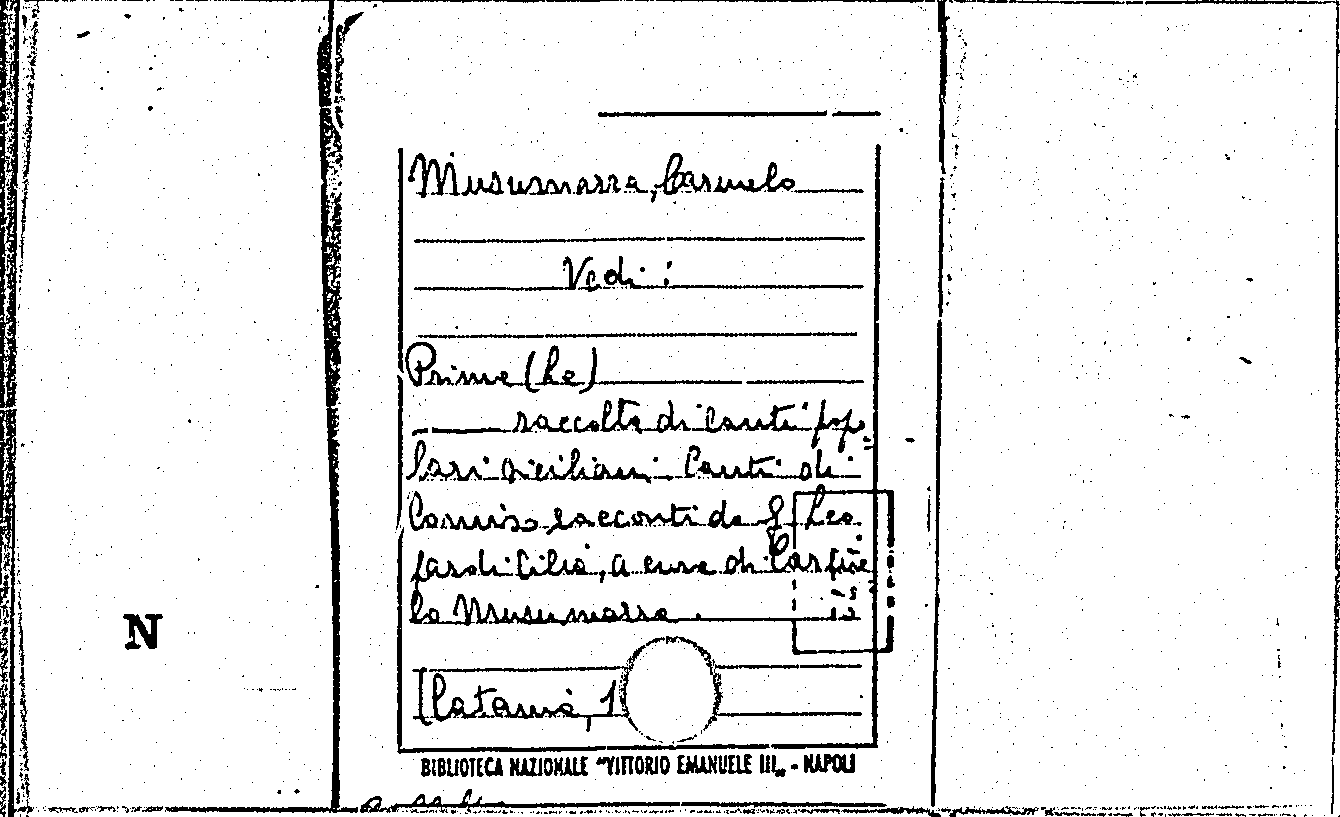 Musumarra, Carmelo
Vedi :
Prime (Le)
——— raccolte di canti popo-
lari siciliani. Canti di
Comiso raccolti da G. Leo
pardi Cilia, a cura di Carme
lo Musumarra.
[Catania, 1
N
BIBLIOTECA NAZIONALE "VITTORIO EMANUELE III„ - NAPOLI